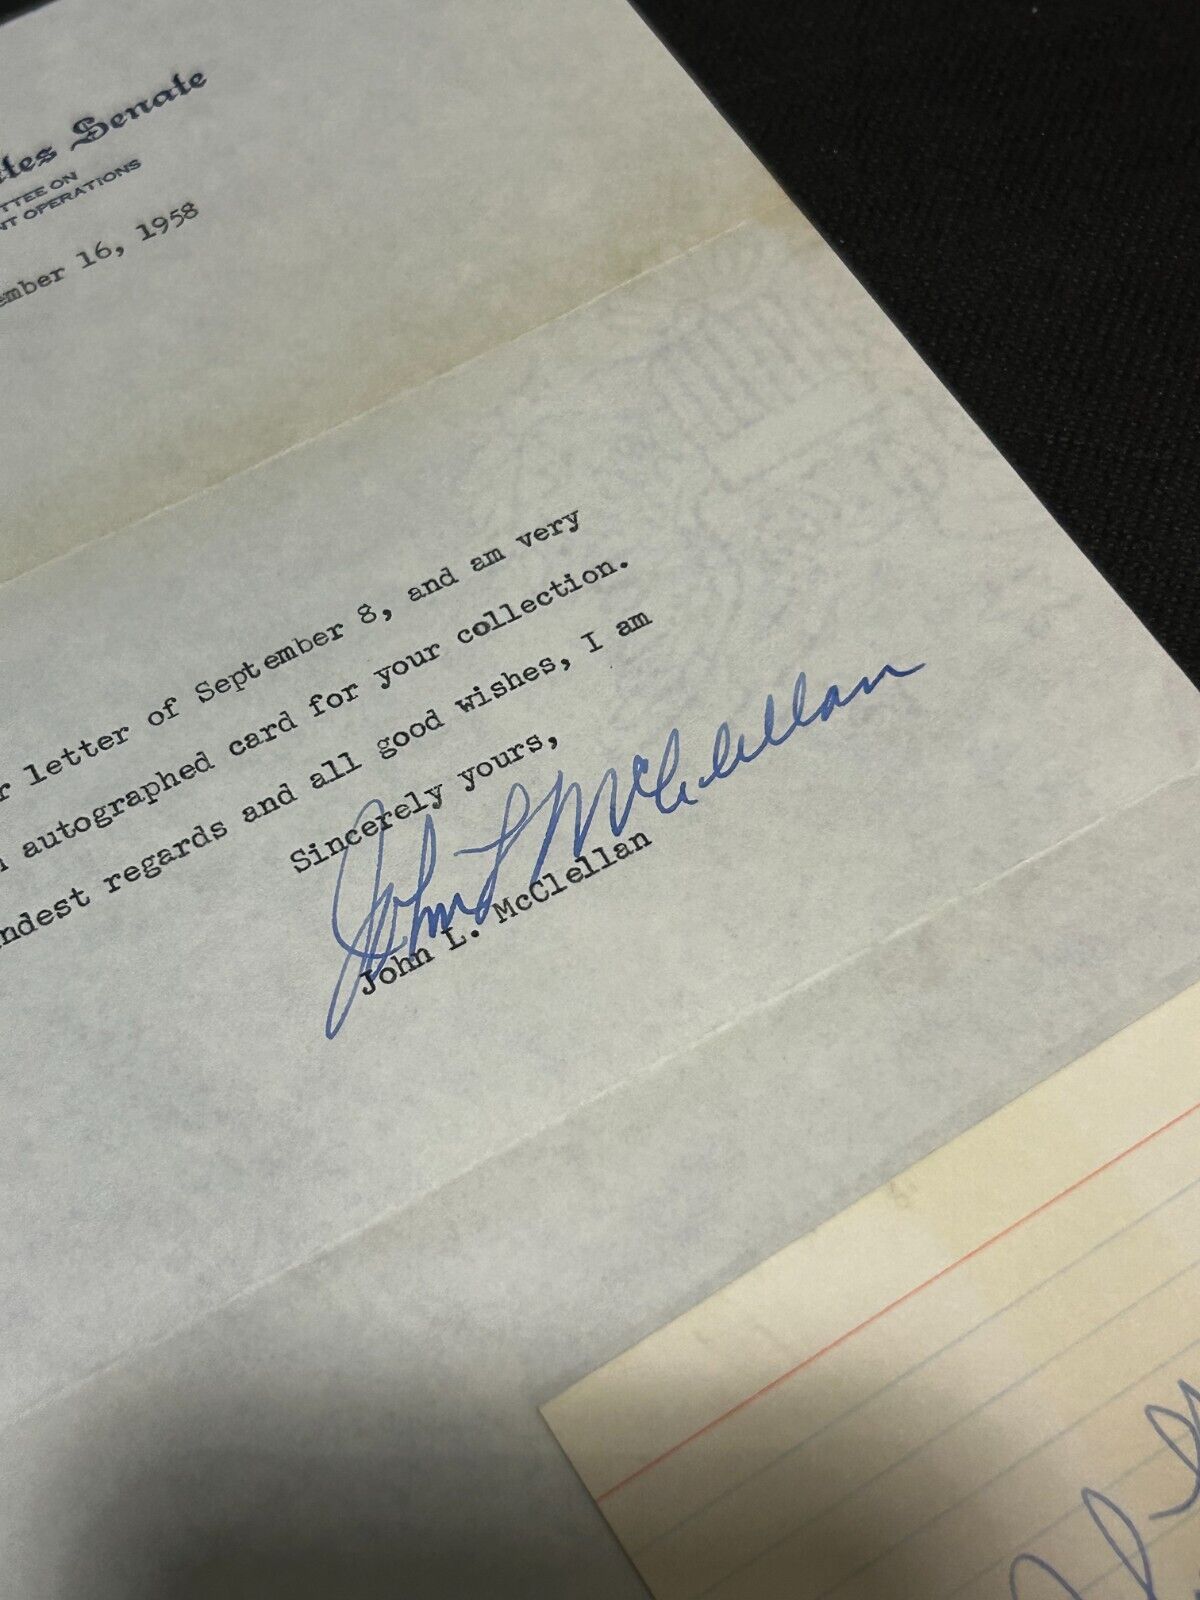 Senate
OPERATIONS
16, 1958
letter of September 8, and am very
autographed card for your collection.
regards and all good wishes, I am
Sincerely yours,
John L McClellan
John L. McClellan